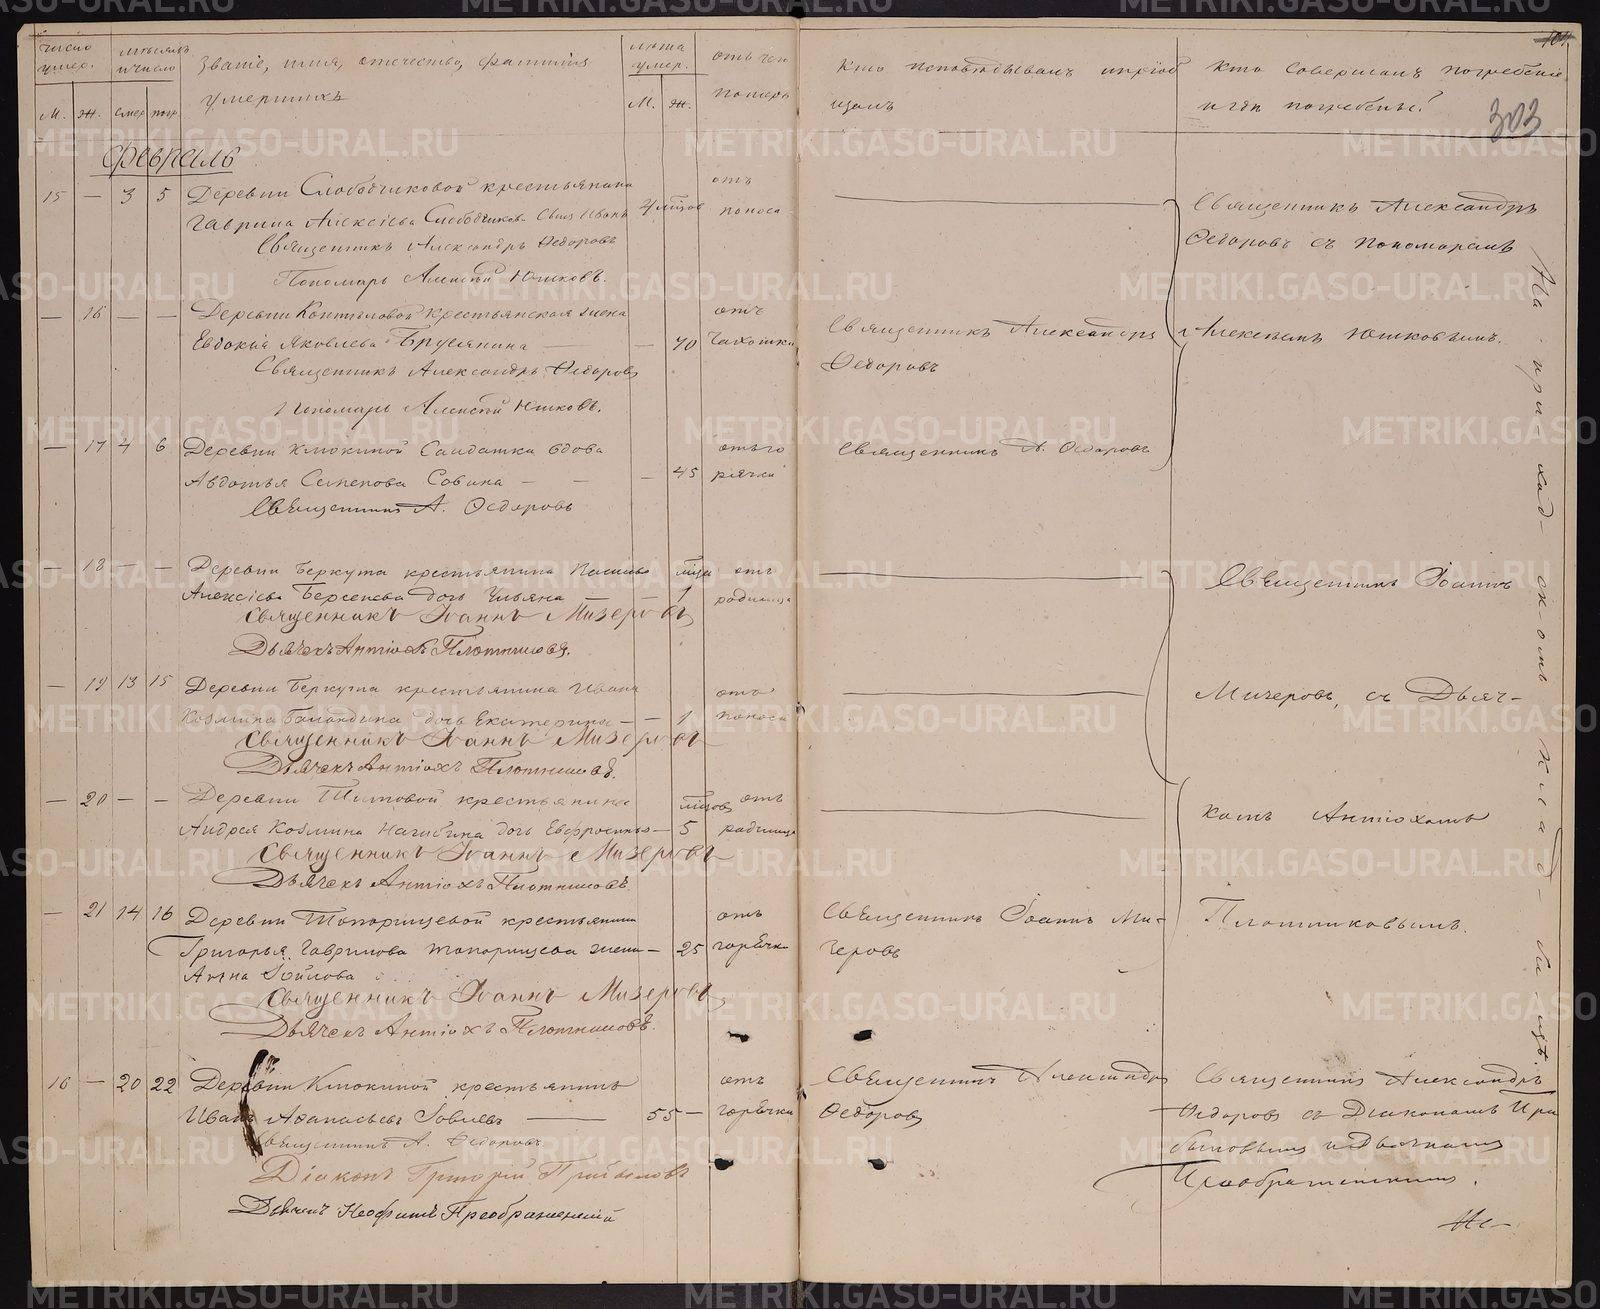 Число умер.
Мѣсяцъ и число
Званіе, имя, отечество, фамилія умершихъ
лѣта умер.
отъ чего померъ
Кто исповѣдывалъ и пріобщалъ
Кто совершалъ погребеніе и гдѣ погребены?
М. Ж. смер. погр.
М. Ж.
303
Февраль
15 — 3 5 Деревни Слободчиковой крестьянина
Гаврила Алексіева Слободчикова сынъ Иванъ
4 мѣсяцов
отъ поноса
Священникъ Александръ Ѳедоровъ
Пономарь Алексѣй Юшковъ.
Священникъ Александръ
Ѳедоровъ съ Пономаремъ
— 16 — — Деревни крестьянская жена
Евдокія Яковлева Брусянина — — 70
отъ Чахотки
Священникъ Александръ Ѳедоровъ
Пономарь Алексѣй Юшковъ.
Священникъ Александръ
Ѳедоровъ
Алексѣемъ Юшковымъ.
— 17 4 6 Деревни Клюкиной Салдатка вдова
Авдотья Семенова Совина — — — 45
отъ горячки
Священникъ А. Ѳедоровъ
Священникъ А. Ѳедоровъ
— 18 — — Деревни Беркута крестьянина
Алексіева Берсенева дочь Ульяна — 1
отъ родимца
Священникъ Іоаннъ Мизеровъ
Дьячекъ Антіохъ Плотниковъ.
Священникъ Іоаннъ
— 19 13 15 Деревни Беркута крестьянина Ивана
Козмина дочь Екатерина — — 1
отъ поноса
Священникъ Іоаннъ Мизеровъ
Дьячекъ Антіохъ Плотниковъ.
Мизеровъ, съ Дьяч-
— 20 — — Деревни Титовой крестьянина
Андрея Козмина Нагибина дочь Евфросинья — 5
отъ родимца
Священникъ Іоаннъ Мизеровъ
Дьячекъ Антіохъ Плотниковъ.
комъ Антіохомъ
— 21 14 16 Деревни Топорищевой крестьянина
Григорья Гаврилова Топорищева жена — 25
Анна
отъ горячки
Священникъ Іоаннъ Мизеровъ
Дьячекъ Антіохъ Плотниковъ.
Священникъ Іоаннъ Ми-
зеровъ
Плотниковымъ.
16 — 20 22 Деревни Клюкиной крестьянинъ
Иванъ Аѳанасьевъ — 55 —
отъ горячки
Священникъ А. Ѳедоровъ
Діаконъ Григорій Прибыловъ
Дьячекъ Неофитъ Преображенскій
Священникъ Александръ
Ѳедоровъ
Священникъ Александръ
Ѳедоровъ съ Діакономъ При
быловымъ и Дьячкомъ
Преображенскимъ.
На при-ход-скомъ клад-би-щѣ.
METRIKI.GASO-URAL.RU